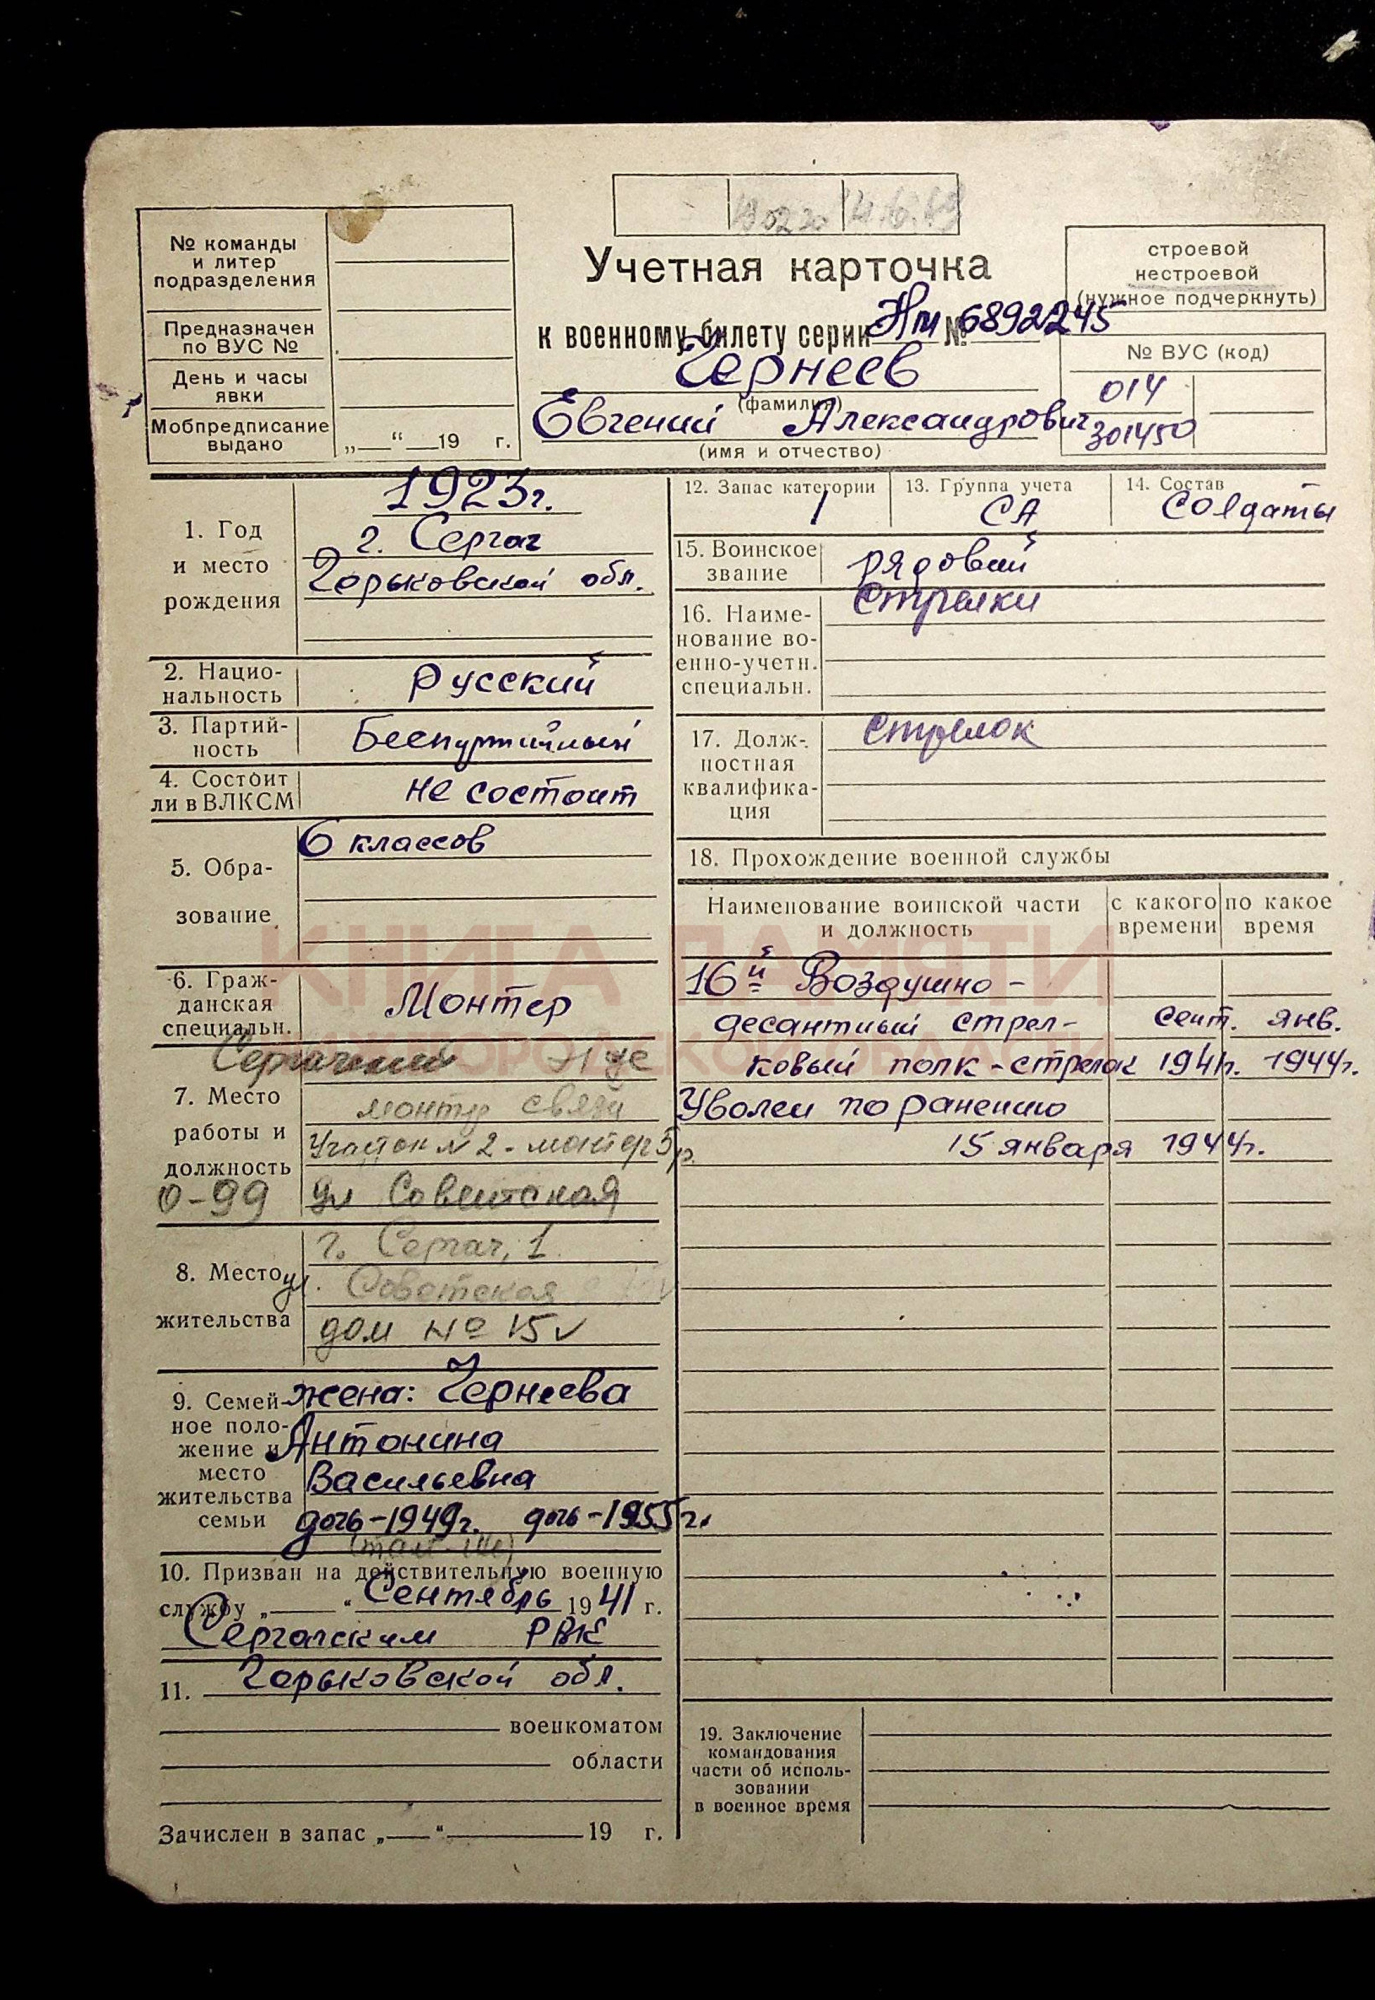 № команды
и литер
подразделения
Предназначен
по ВУС №
День и часы
явки
Мобпредписание
выдано
„ “ 19 г.
Учетная карточка
к военному билету серии НМ № 6892245
Чернеев
(фамилия)
Евгений Александрович
(имя и отчество)
строевой
нестроевой
(нужное подчеркнуть)
№ ВУС (код)
014
301450
1. Год
и место
рождения
1923г.
г. Сергач
Горьковской обл.
2. Нацио-
нальность
Русский
3. Партий-
ность
Беспартийный
4. Состоит
ли в ВЛКСМ
не состоит
5. Обра-
зование
6 классов
6. Граж-
данская
специальн.
Монтер
7. Место
работы и
должность
Сергачский
монтер связи
Участок №2 - монтер 5р.
0-99 ул Советская
8. Место
жительства
г. Сергач, 1
ул. Советская
дом № 15
9. Семей-
ное поло-
жение и
место
жительства
семьи
жена: Чернеева
Антонина
Васильевна
дочь-1949г. дочь-1955г.
(там же)
10. Призван на действительную военную
службу „ “ Сентябрь 1941 г.
Сергачским РВК
11. Горьковской обл.
военкоматом
области
Зачислен в запас „ “ 19 г.
12. Запас категории
1
13. Группа учета
СА
14. Состав
Солдаты
15. Воинское
звание
рядовой
16. Наиме-
нование во-
енно-учетн.
специальн.
Стрелки
17. Долж-
ностная
квалифика-
ция
Стрелок
18. Прохождение военной службы
Наименование воинской части
и должность
с какого
времени
по какое
время
16й Воздушно-
десантный стрел- сент. янв.
ковый полк - стрелок 1941г. 1944г.
Уволен по ранению
15 января 1944г.
19. Заключение
командования
части об исполь-
зовании
в военное время
КНИГА ПАМЯТИ
НИЖЕГОРОДСКОЙ ОБЛАСТИ